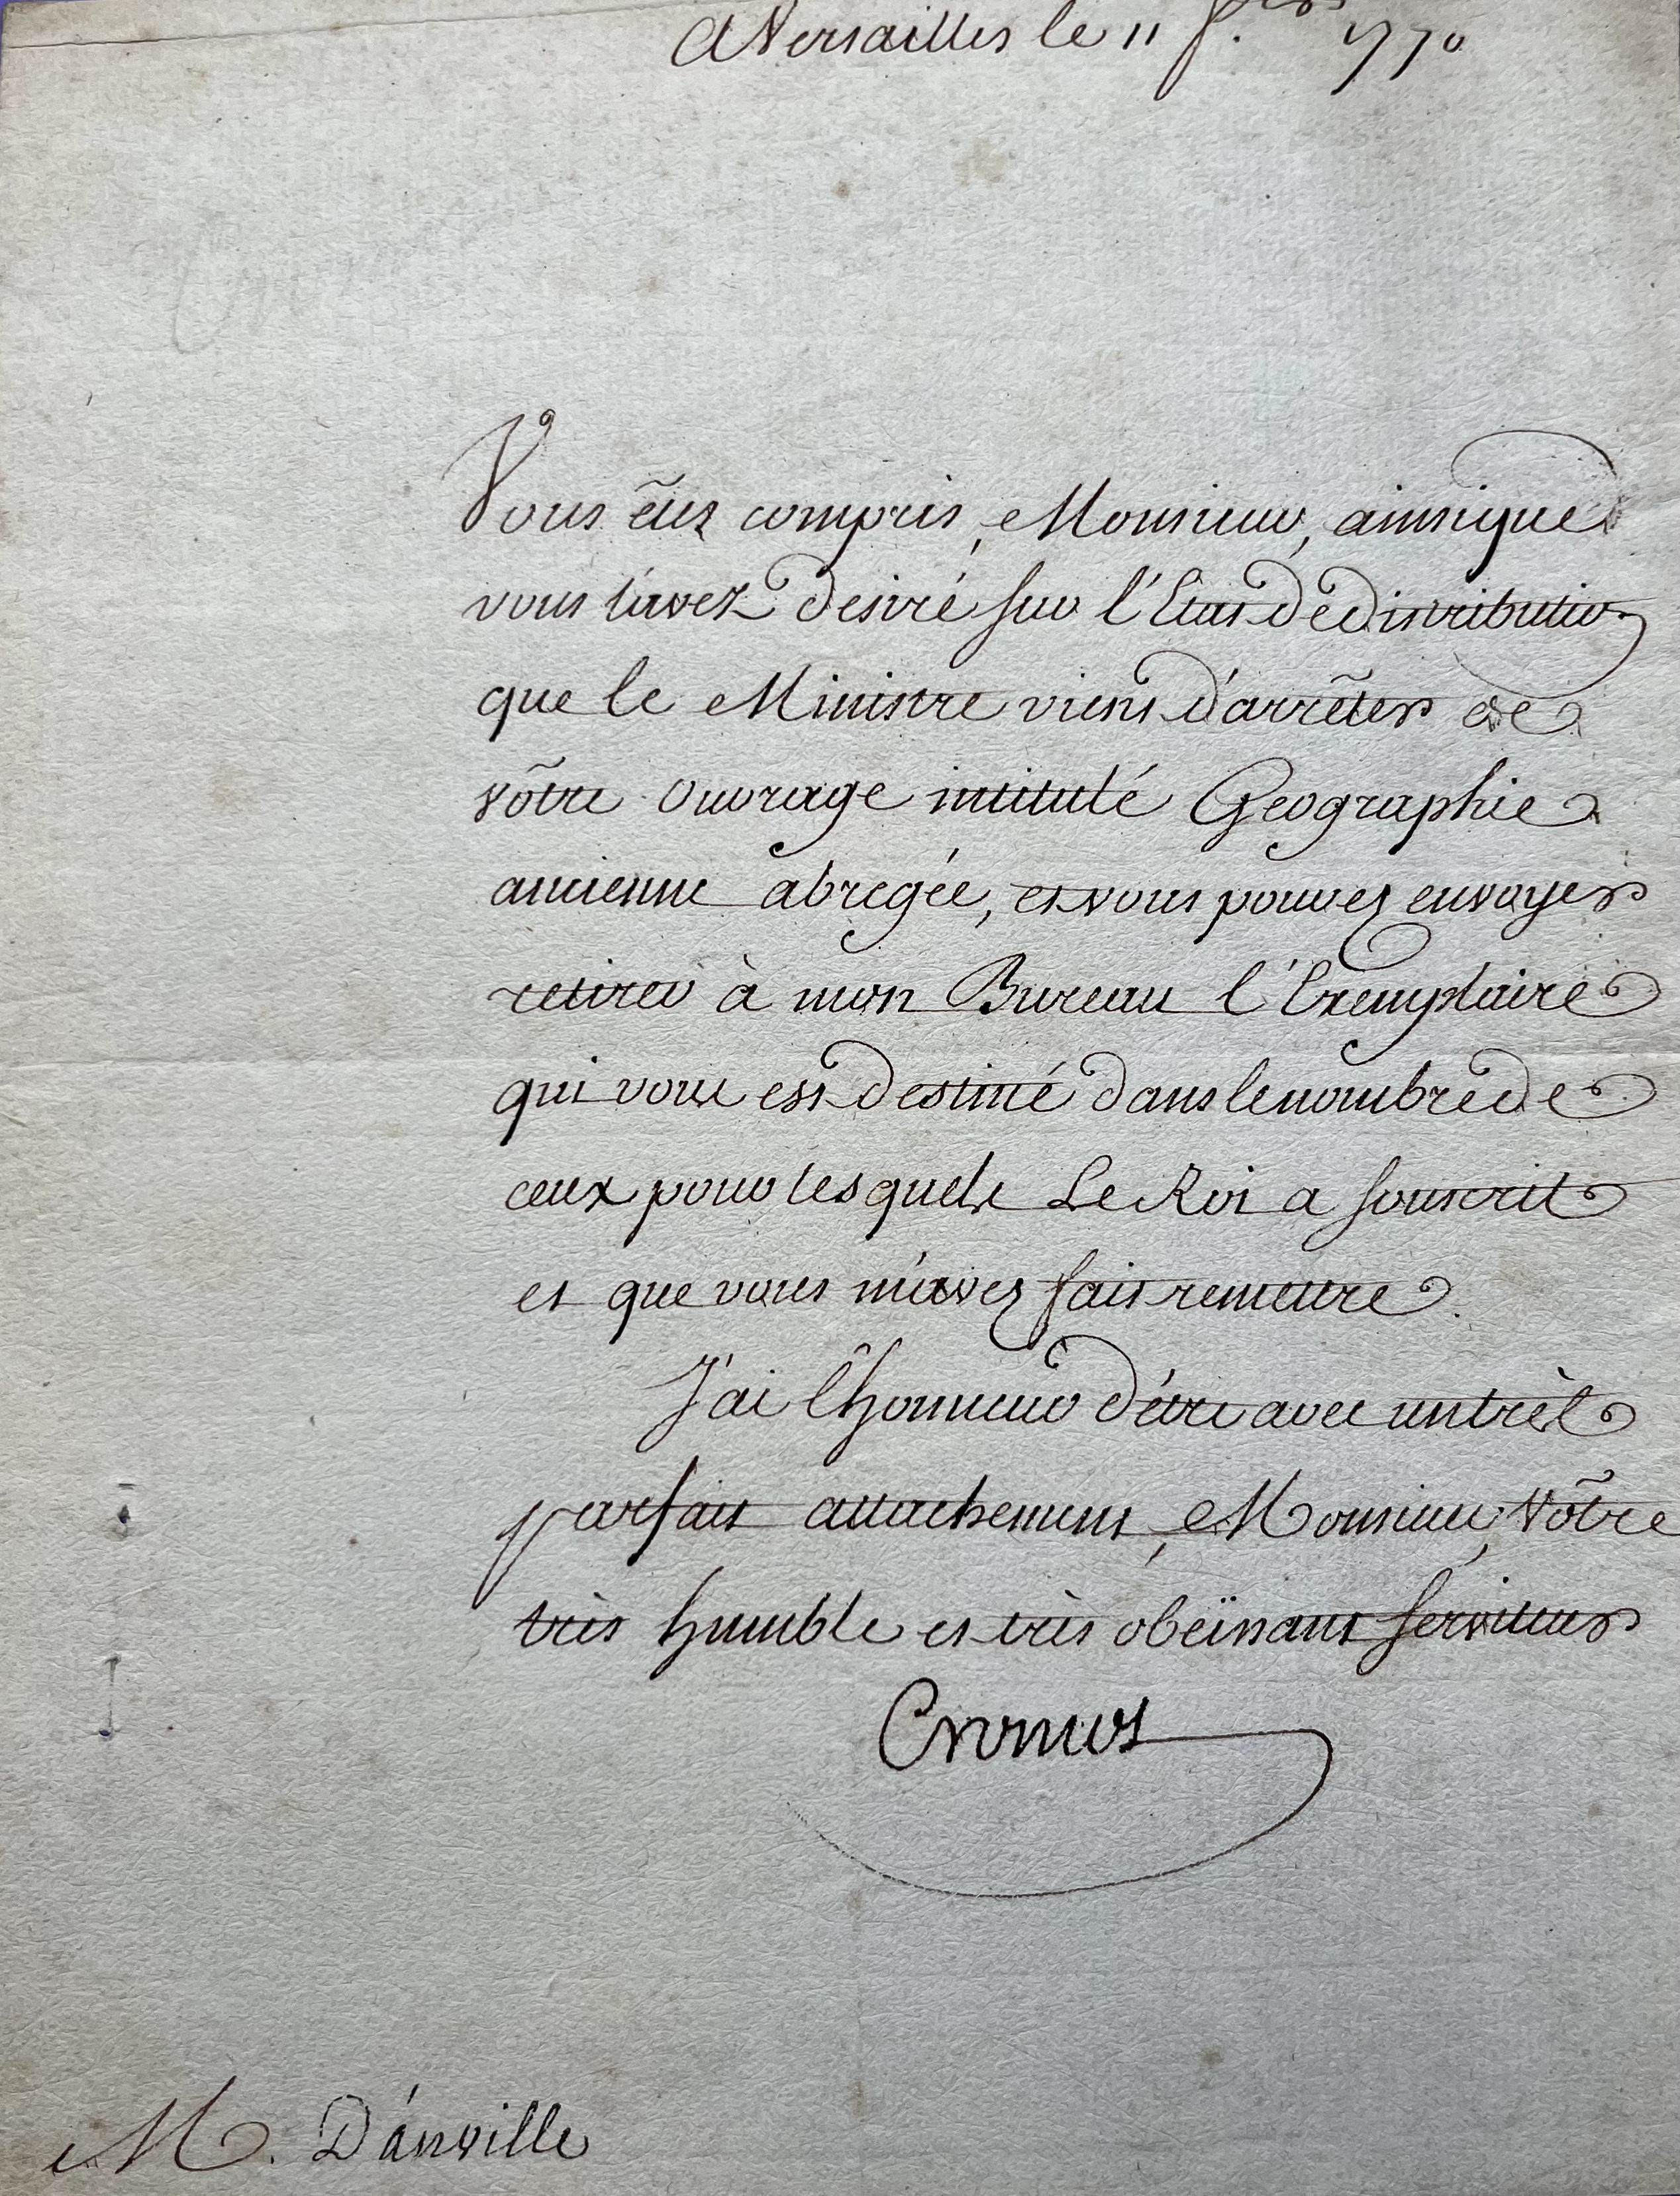 A Versailles le 11 f.er 1770
Vous êtes compris, Monsieur, ainsi que
vous l'avez desiré sur l'Etat de distribution
que le Ministre vient d'arrêter de
vôtre Ouvrage intitulé Geographie
ancienne abregée, et vous pouvez envoyer
retirer à mon Bureau l'Exemplaire
qui vous est destiné dans le nombre de
ceux pour lesquels Le Roi a souscrit
et que vous m'avez fait remettre.
J'ai l'honneur d'être avec un très
parfait attachement, Monsieur, Vôtre
très humble et très obeïssant serviteur
Cromot
M. D'anville